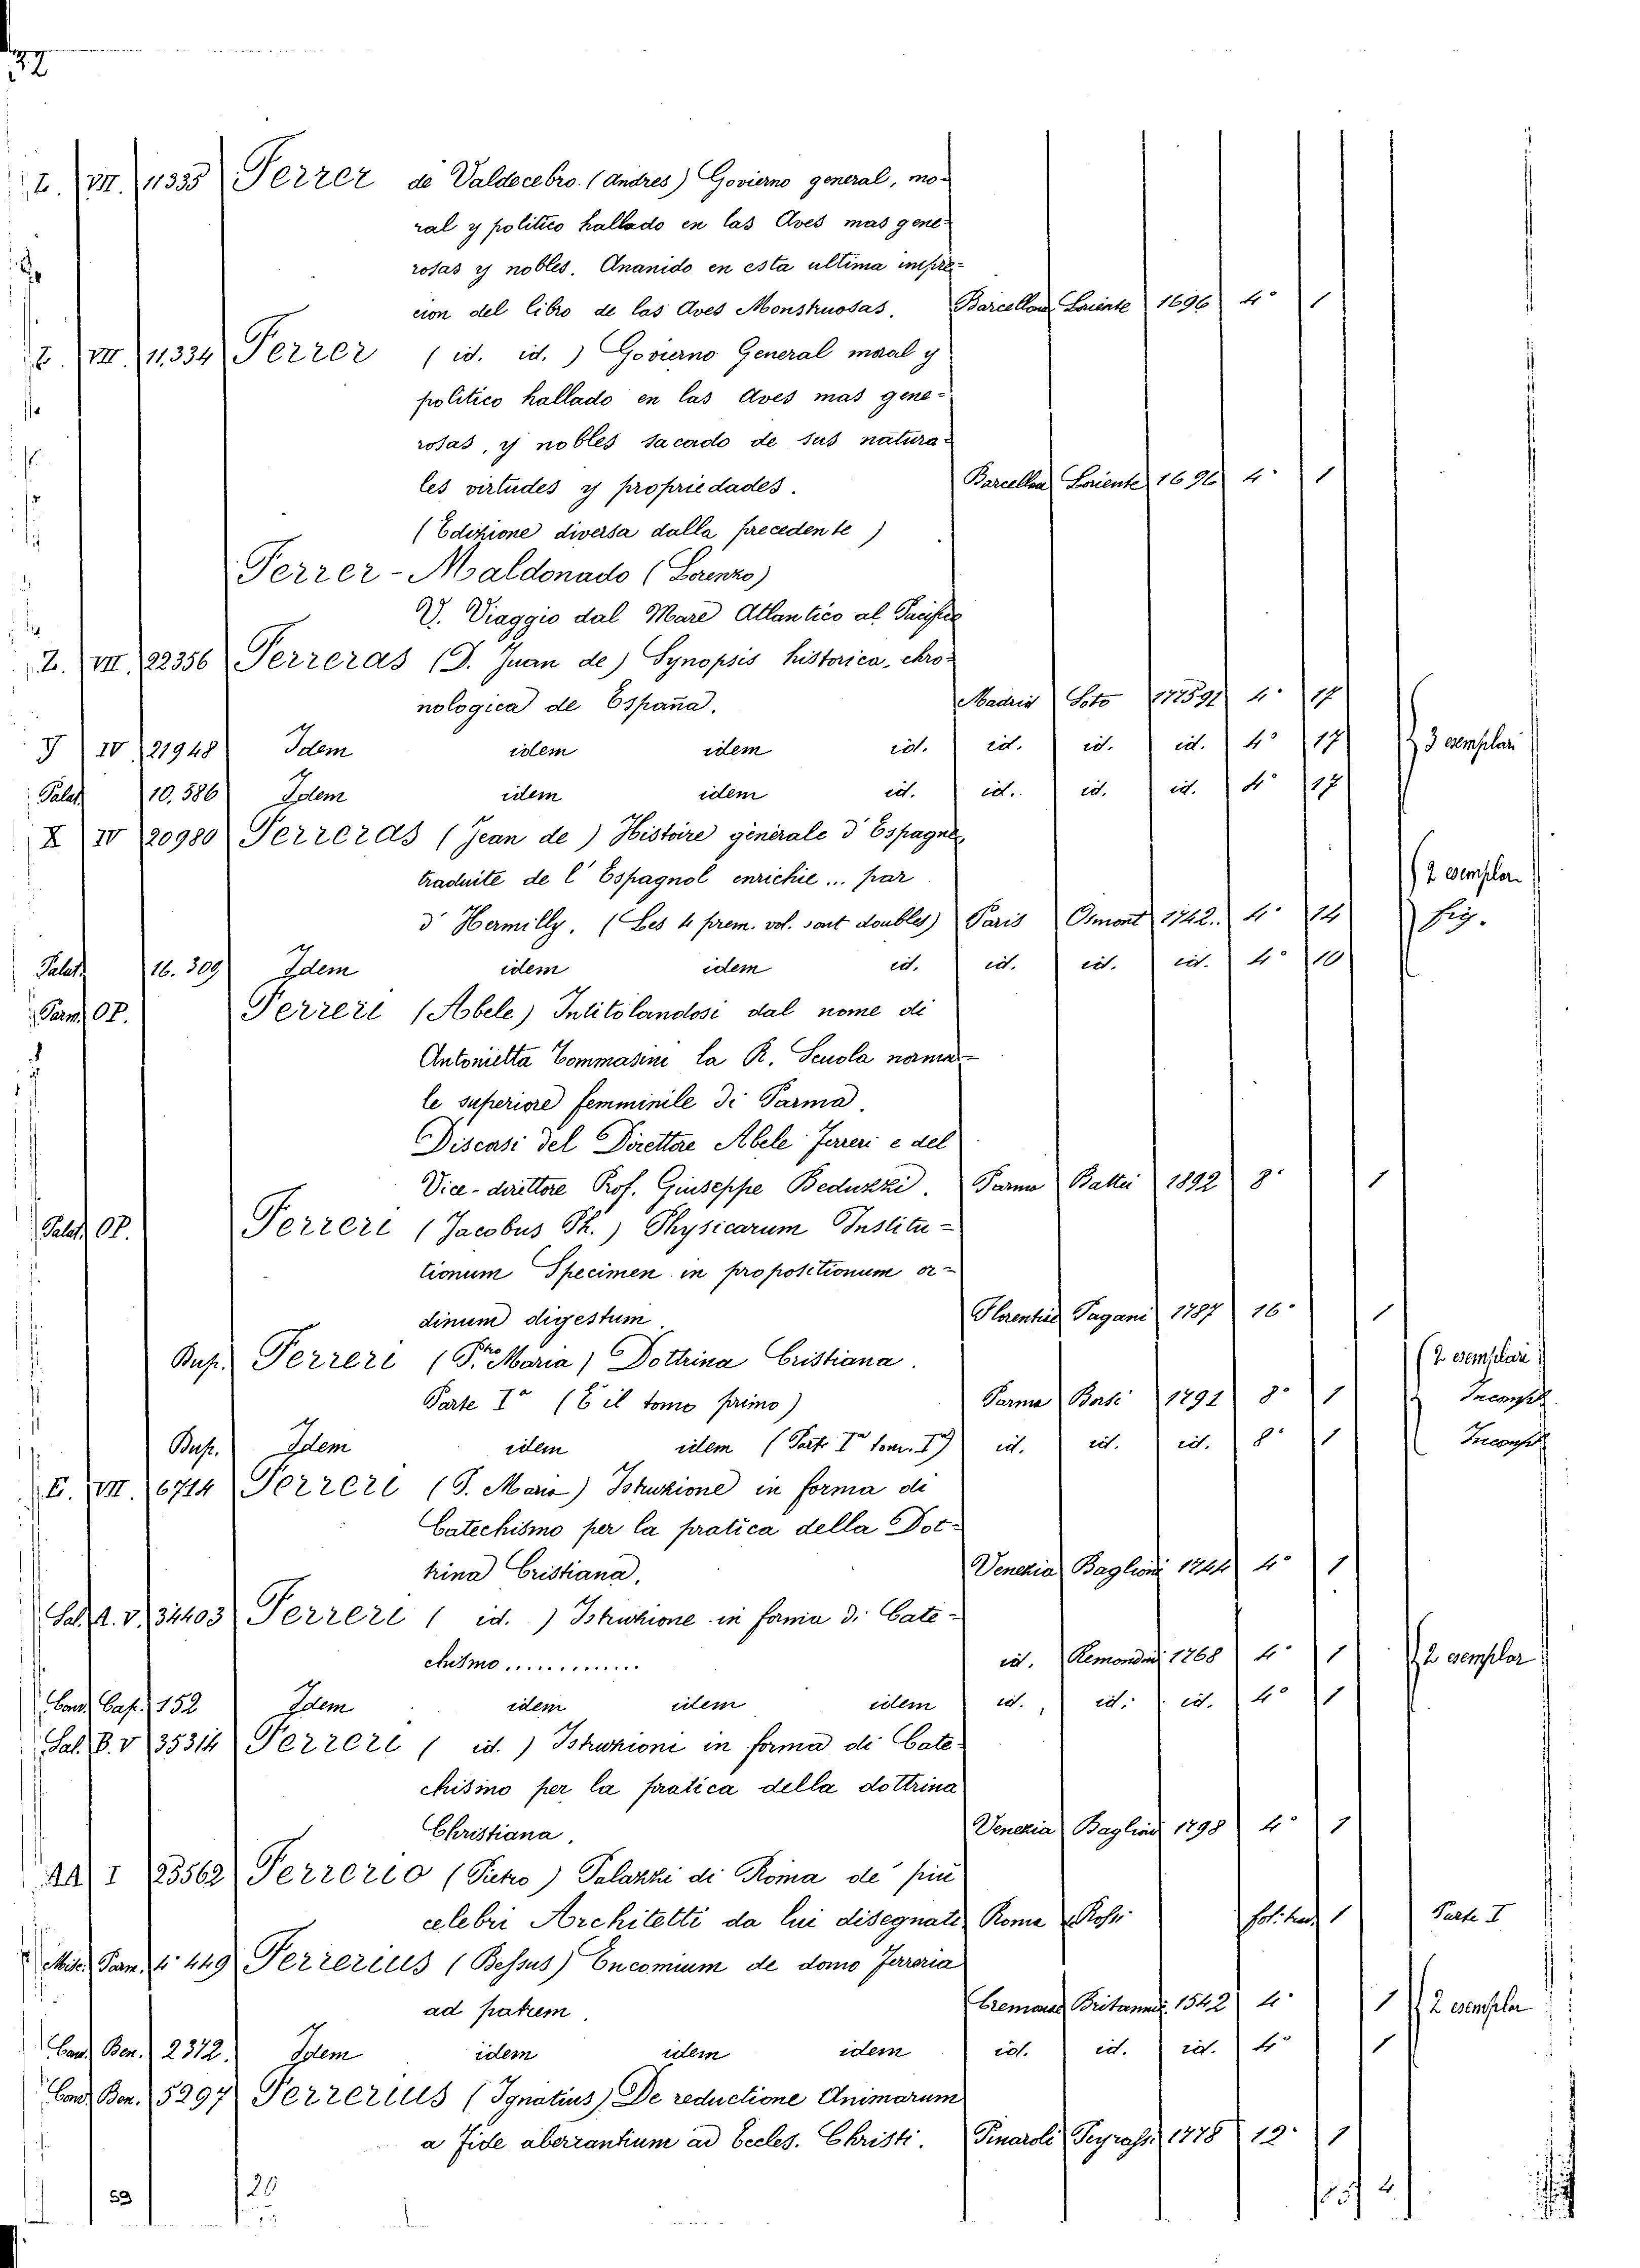 32
Z. VII. 11335 Ferrer de Valdecebro. (Andres) Govierno general, mo-
ral y politico hallado en las Aves mas gene-
rosas y nobles. Ananido en esta ultima impre-
cion del libro de las Aves Monstruosas. Barcellona Loriente 1696 4° 1
Z. VII. 11.334 Ferrer (id. id.) Govierno General moral y
politico hallado en las Aves mas gene-
rosas, y nobles sacado de sus natura-
les virtudes y propriedades. Barcellona Loriente 1696 4° 1
(Edizione diversa dalla precedente)
Ferrer-Maldonado (Lorenzo)
V. Viaggio dal Mare Atlantico al Pacifico
Z. VII. 22356 Ferreras (D. Juan de) Synopsis historica, chro-
nologica de España. Madrid Soto 177591 4° 17
Y IV 21948 Idem idem idem id. id. id. id. 4° 17 3 esemplari
Palat. 10.386 Idem idem idem id. id. id. id. 4° 17
X IV 20980 Ferreras (Jean de) Histoire générale d'Espagne
traduite de l'Espagnol enrichie... par 2 esemplar.
d'Hermilly. (Les 4 prem. vol. sont doubles) Paris Osmont 1742. 4° 14 fig.
Palat. 16.309 Idem idem idem id. id. id. id. 4° 10
Parm. OP. Ferreri (Abele) Intitolandosi dal nome di
Antonietta Tommasini la R. Scuola norma-
le superiore femminile di Parma.
Discorsi del Direttore Abele Ferreri e del
Vice-direttore Prof. Giuseppe Beduzzi. Parma Battei 1892 8° 1
Palat. OP. Ferreri (Jacobus Ph.) Physicarum Institu-
tionum Specimen in propositionum or-
dinum digestum. Florentiae Pagani 1787 16° 1
Bup. Ferreri (P.tro Maria) Dottrina Cristiana. 2 esemplari
Parte I.a (È il tomo primo) Parma Borsi 1791 8° 1 Incompl.
Bup. Idem idem idem (Parte I.a tom. I°) id. id. id. 8° 1 Incompl.
E. VII. 6714 Ferreri (P. Maria) Istruzione in forma di
Catechismo per la pratica della Dot-
trina Cristiana. Venezia Baglioni 1744 4° 1
Sal. A. V. 34403 Ferreri (id.) Istruzione in forma di Cate-
chismo............. id. Remondini 1768 4° 1 2 esemplar
Conv. Cap. 152 Idem idem idem idem id. id. id. 4° 1
Sal. B. V 35314 Ferreri (id.) Istruzioni in forma di Cate-
chismo per la pratica della dottrina
Christiana. Venezia Baglioni 1798 4° 1
AA I 23562 Ferrerio (Pietro) Palazzi di Roma de' più
celebri Architetti da lui disegnati Roma Rossi fol. 1 Parte I
Misc. Parm. 4° 449 Ferrerius (Bessus) Encomium de domo Ferreria
ad patrem. Cremonae Britannic. 1542 4° 1 2 esemplar
Conv. Ben. 2372. Idem idem idem idem id. id. id. 4° 1
Conv. Ben. 5297 Ferrerius (Ignatius) De reductione Animarum
a Fide aberrantium ad Eccles. Christi. Pinaroli Peyrass. 1778 12° 1
59 20 4